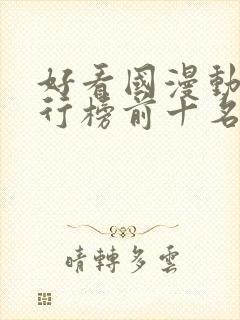 好看國漫動
行榜前十名
晴轉多雲